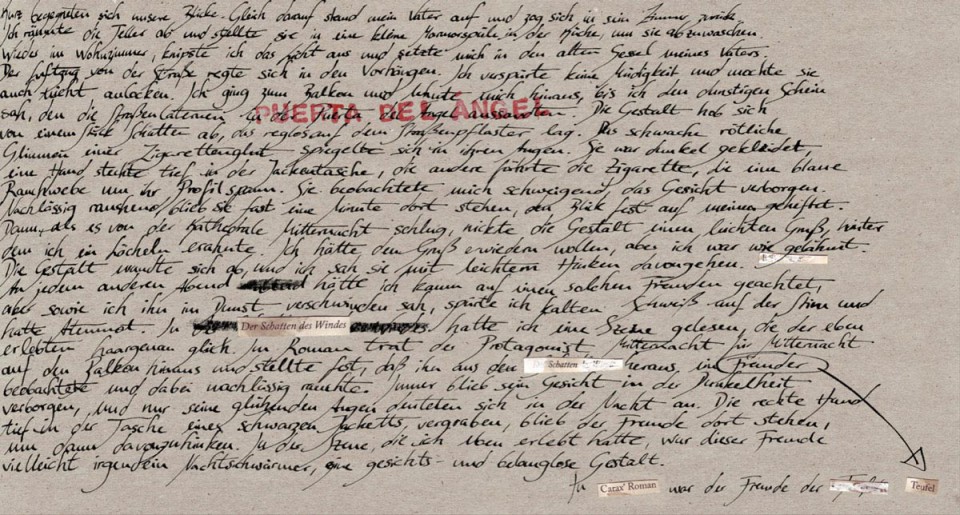 Kurz begegneten sich unsere Blicke. Gleich darauf stand mein Vater auf und zog sich in sein Zimmer zurück.
Ich räumte die Teller ab und stellte sie in eine kleine Marmorspüle in der Küche, um sie abzuwaschen.
Wieder im Wohnzimmer, knipste ich das Licht aus und setzte mich in den alten Sessel meines Vaters.
Der Luftzug von der Straße regte sich in den Vorhängen. Ich verspürte keine Müdigkeit und mochte sie
auch nicht anlocken. Ich ging zum Balkon und lehnte mich hinaus, bis ich den dunstigen Schein
sah, den die Straßenlaternen in der Puerta del Ángel aussandten. Die Gestalt hob sich
PUERTA DEL ÁNGEL
von einem Stück Schatten ab, das reglos auf dem Straßenpflaster lag. Das schwache rötliche
Glimmen einer Zigarettenglut spiegelte sich in ihren Augen. Sie war dunkel gekleidet,
eine Hand steckte tief in der Jackentasche, die andere führte die Zigarette, die eine blaue
Rauchwebe um ihr Profil spann. Sie beobachtete mich schweigend, das Gesicht verborgen.
Nachlässig rauchend blieb sie fast eine Minute dort stehen, den Blick fest auf meinen geheftet.
Dann, als es von der Kathedrale Mitternacht schlug, nickte die Gestalt einen leichten Gruß, hinter
dem ich ein Lächeln erahnte. Ich hätte den Gruß erwiedern wollen, aber ich war wie gelähmt.
Die Gestalt wandte sich ab, und ich sah sie mit leichtem Hinken davongehen.
An jedem anderen Abend hätte ich kaum auf einen solchen Fremden geachtet,
aber sowie ich ihn im Dunst verschwinden sah, spürte ich kalten Schweiß auf der Stirn und
hatte Atemnot. In Der Schatten des Windes hatte ich eine Szene gelesen, die der eben
erlebten haargenau glich. Im Roman trat der Protagonist Mitternacht für Mitternacht
auf den Balkon hinaus und stellte fest, daß ihn aus dem Schatten heraus, ein Fremder
beobachtete und dabei nachlässig rauchte. Immer blieb sein Gesicht in der Dunkelheit
verborgen, und nur seine glühenden Augen deuteten sich in der Nacht an. Die rechte Hand
tief in der Tasche eines schwarzen Jacketts, vergraben, blieb der Fremde dort stehen,
um dann davonzuhinken. In der Szene, die ich eben erlebt hatte, war dieser Fremde
vielleicht irgendein Nachtschwärmer, eine gesichts- und belanglose Gestalt.
In Carax' Roman war der Fremde der Teufel